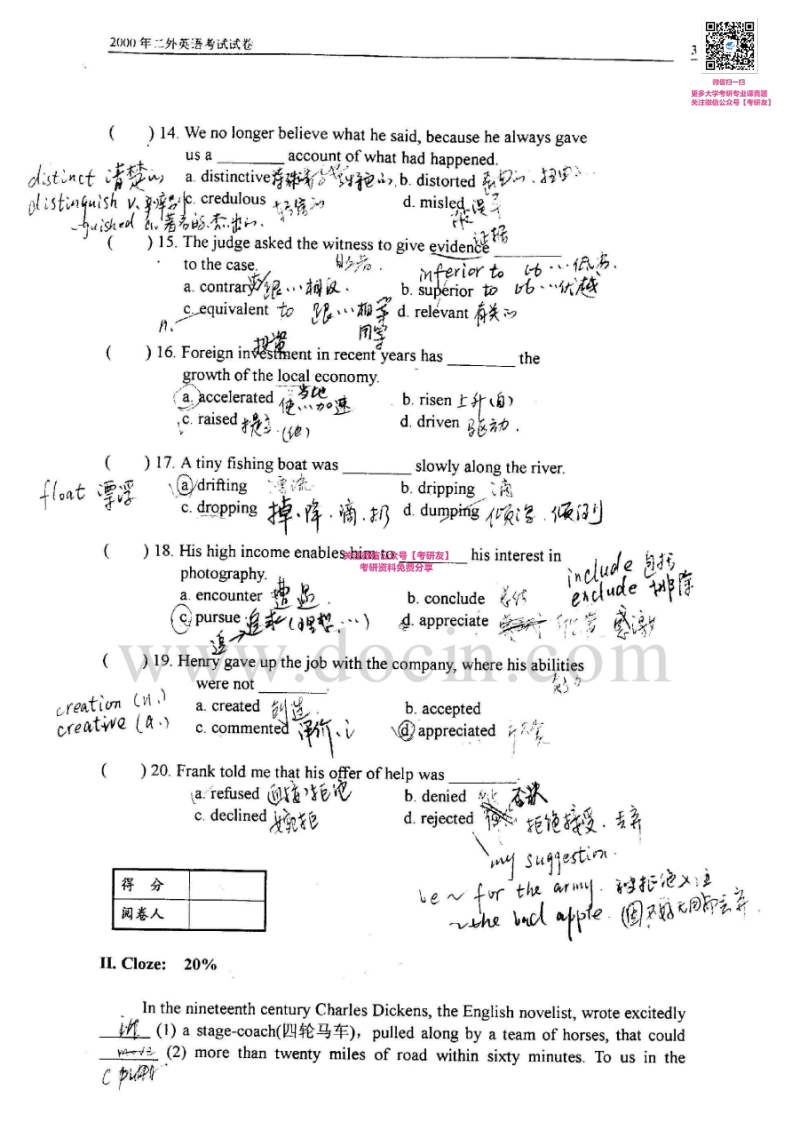 2000年二外英语考试试卷
3
微信扫一扫
更多大学考研专业课真题
关注微信公众号【考研友】
( ) 14. We no longer believe what he said, because he always gave
us a ________ account of what had happened.
distinct 清楚的
a. distinctive
b. distorted
distinguish v.
c. credulous 轻信的
d. misled 被误导
-guished a. 著名的.杰出的.
( ) 15. The judge asked the witness to give evidence ________
证据
to the case.
inferior to 比…低劣.
a. contrary 跟…相反.
b. superior to 比…优越
c. equivalent to 跟…相等
d. relevant 有关的
n.
同等
投资
( ) 16. Foreign investment in recent years has ________ the
growth of the local economy.
当地
a. accelerated 使…加速
b. risen 上升(自)
c. raised 提高.(他)
d. driven 驱动.
( ) 17. A tiny fishing boat was ________ slowly along the river.
float 漂浮
a. drifting 漂流
b. dripping 滴
c. dropping 掉.降.滴.扔
d. dumping 倾泻.倾倒
( ) 18. His high income enables him to ________ his interest in
关注微信公众号【考研友】
考研资料免费分享
photography.
include 包括
exclude 排除
a. encounter 遭遇.
b. conclude 总结
c. pursue 追求(理想…)
d. appreciate 欣赏 感激
追
www.docin.com
( ) 19. Henry gave up the job with the company, where his abilities
were not ________.
能力
creation (n.)
a. created 创造.
b. accepted
creative (a.)
c. commented 评价.
d. appreciated 欣赏
( ) 20. Frank told me that his offer of help was ________.
a. refused 直接拒绝
b. denied 否认
c. declined 婉拒
d. rejected 拒绝接受.丢弃
my suggestion.
be ~ for the army.
~ the bad apple.
得 分
阅卷人
II. Cloze: 20%
In the nineteenth century Charles Dickens, the English novelist, wrote excitedly
____ (1) a stage-coach(四轮马车), pulled along by a team of horses, that could
move (2) more than twenty miles of road within sixty minutes. To us in the